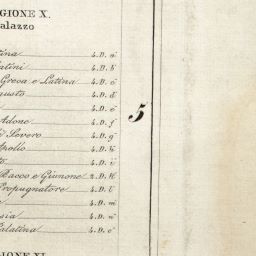 GIONE X.
alazzo
tina 4. D. a
latini 4. D. b
Greca e Latina 4. D. c
gusto 4. D. d
4. D. e
Adone 4. D. f
i Severo 4. D. g
Apollo 4. D. h
o 4. D. i
Bacco e Giunone 2. D. K
Propugnatore 4. D. l
e 4. D. m
sia 4. D. n
Palatina 4. D. o
GIONE XI.
5